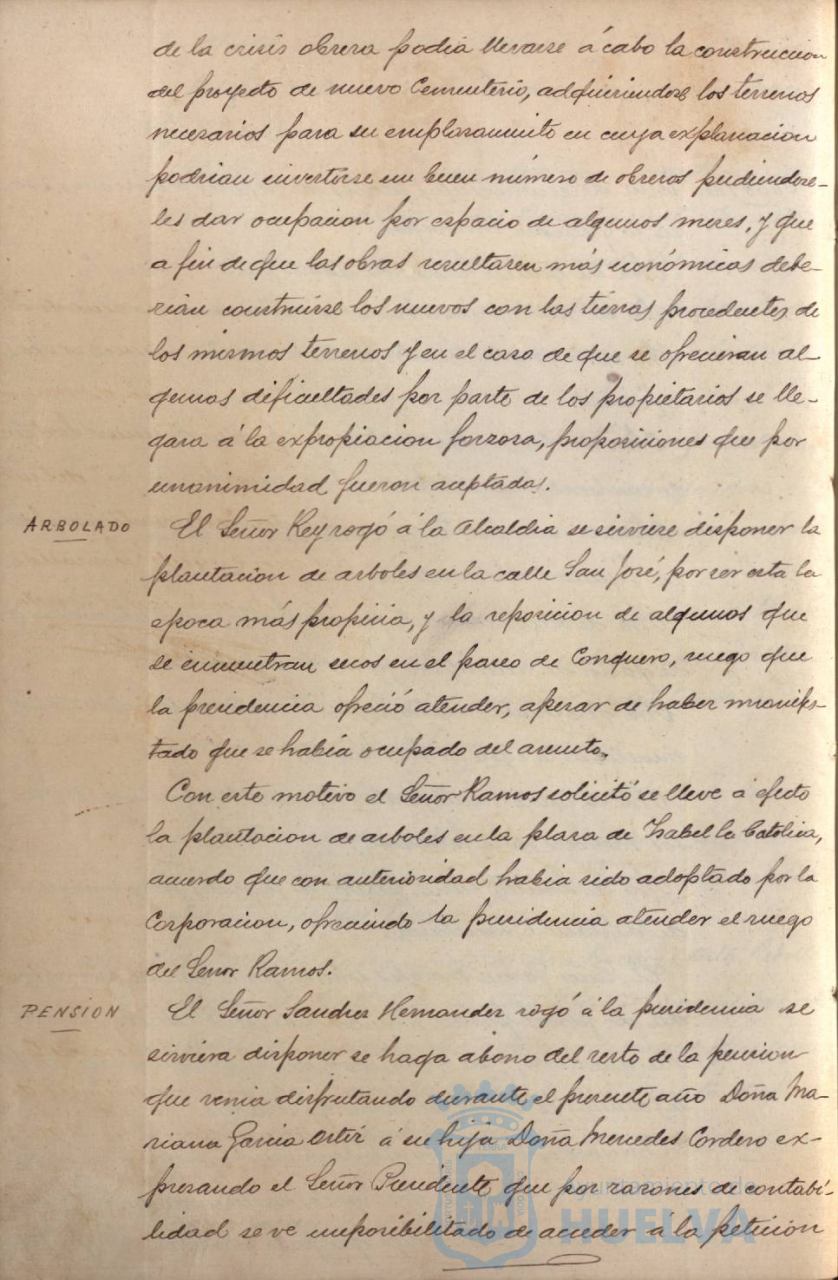 de la crisis obrera podia llevarse á cabo la construccion
del proyecto de nuevo Cementerio, adquiriendose los terrenos
necesarios para su emplasamiento en cuya explanacion
podrian invertirse un buen número de obreros pudiendose-
les dar ocupacion por espacio de algunos meses, y que
a fin de que las obras resultasen más económicas debe-
rian construirse los nuevos con las tierras procedentes de
los mismos terrenos y en el caso de que se ofrecieran al-
gunas dificultades por parte de los propietarios se lle-
gara á la expropiacion forzosa, proposiciones que por
unanimidad fueron aceptadas.
ARBOLADO
El Señor Rey rogó á la Alcaldia se sirviese disponer la
plantacion de arboles en la calle San José, por ser esta la
epoca más propicia, y la reposicion de algunos que
se encuentran secos en el paseo de Conquero, ruego que
la presidencia ofreció atender, apesar de haber manifes-
tado que se habia ocupado del asunto.
Con este motivo el Señor Ramos solicitó se lleve á efecto
la plantacion de arboles en la plasa de Isabel la Catolica,
acuerdo que con anterioridad habia sido adoptado por la
Corporacion, ofreciendo la presidencia atender el ruego
del Señor Ramos.
PENSION
El Señor Sanches Hernandez rogó á la presidencia se
sirviera disponer se haga abono del resto de la pension
que venia disfrutando durante el presente año Doña Ma-
riana Garcia Ortiz á su hija Doña Mercedes Cordero ex-
presando el Señor Presidente que por razones de contabi-
lidad se ve imposibilitado de acceder á la peticion
Ayuntamiento de
HUELVA